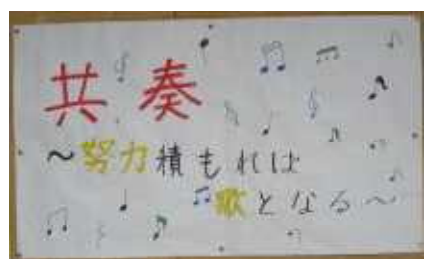 共奏
～努力積もれば
歌となる～